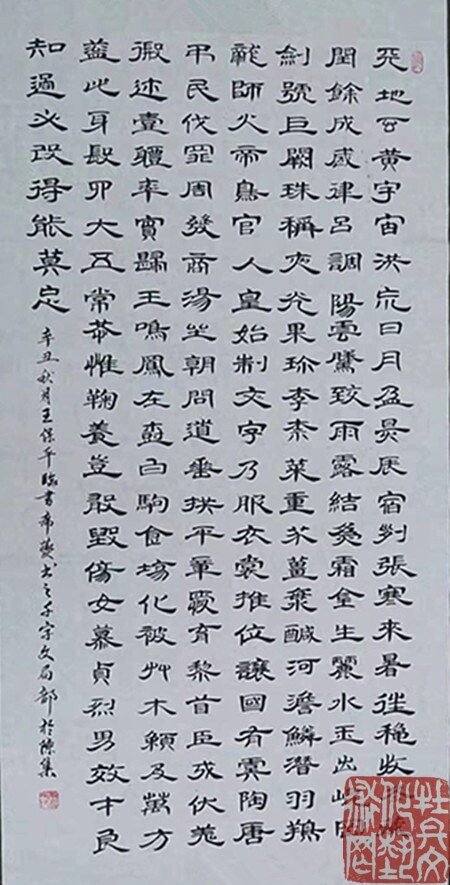 天地玄黃宇宙洪荒日月盈昃辰宿列張寒來暑往穐收藏
閏餘成歲律呂調陽雲騰致雨露結為霜金生麗水玉出崑岡
劍號巨闕珠稱夜光果珍李柰菜重芥薑海鹹河澹鱗潛羽翔
龍師火帝鳥官人皇始制文字乃服衣裳推位讓國有虞陶唐
弔民伐罪周發商湯坐朝問道垂拱平章愛育黎首臣戎伏羌
遐邇壹體率賓歸王鳴鳳在樹白駒食場化被艸木賴及萬方
蓋此身髮四大五常恭惟鞠養豈敢毀傷女慕貞烈男效才良
知過必改得能莫忘 辛丑秋月王保平臨書之千字文局部於陳集